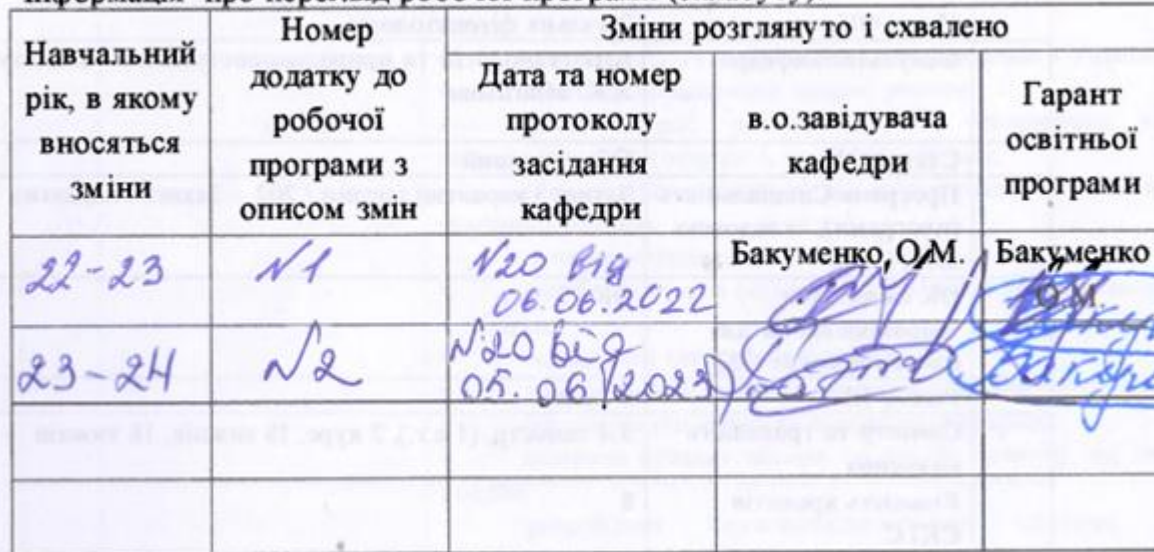 Інформація про перегляд робочої програми (силабусу)
Навчальний
рік, в якому
вносяться
зміни
Номер
додатку до
робочої
програми з
описом змін
Зміни розглянуто і схвалено
Дата та номер
протоколу
засідання
кафедри
в.о.завідувача
кафедри
Гарант
освітньої
програми
22-23
№1
№20 від
06.06.2022
Бакуменко О.М.
Бакуменко
О.М.
23-24
№2
№20 від
05.06.2023